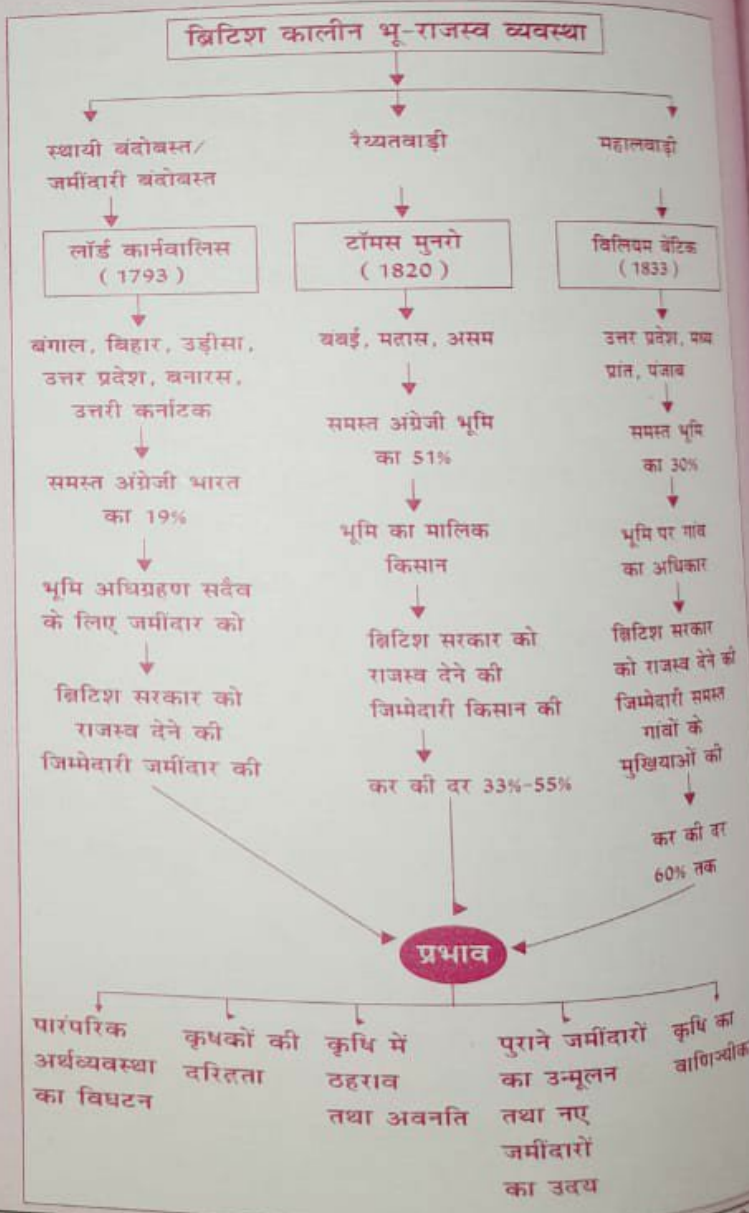 ब्रिटिश कालीन भू-राजस्व व्यवस्था
स्थायी बंदोबस्त/
जमींदारी बंदोबस्त
लॉर्ड कार्नवालिस
( 1793 )
बंगाल, बिहार, उड़ीसा,
उत्तर प्रदेश, बनारस,
उत्तरी कर्नाटक
समस्त अंग्रेजी भारत
का 19%
भूमि अधिग्रहण सदैव
के लिए जमींदार को
ब्रिटिश सरकार को
राजस्व देने की
जिम्मेदारी जमींदार की
रैय्यतवाड़ी
टॉमस मुनरो
( 1820 )
बंबई, मद्रास, असम
समस्त अंग्रेजी भूमि
का 51%
भूमि का मालिक
किसान
ब्रिटिश सरकार को
राजस्व देने की
जिम्मेदारी किसान की
कर की दर 33%-55%
महालवाड़ी
विलियम बेंटिक
( 1833 )
उत्तर प्रदेश, मध्य
प्रांत, पंजाब
समस्त भूमि
का 30%
भूमि पर गांव
का अधिकार
ब्रिटिश सरकार
को राजस्व देने की
जिम्मेदारी समस्त
गांवों के
मुखियाओं की
कर की दर
60% तक
प्रभाव
पारंपरिक
अर्थव्यवस्था
का विघटन
कृषकों की
दरिद्रता
कृषि में
ठहराव
तथा अवनति
पुराने जमींदारों
का उन्मूलन
तथा नए
जमींदारों
का उदय
कृषि का